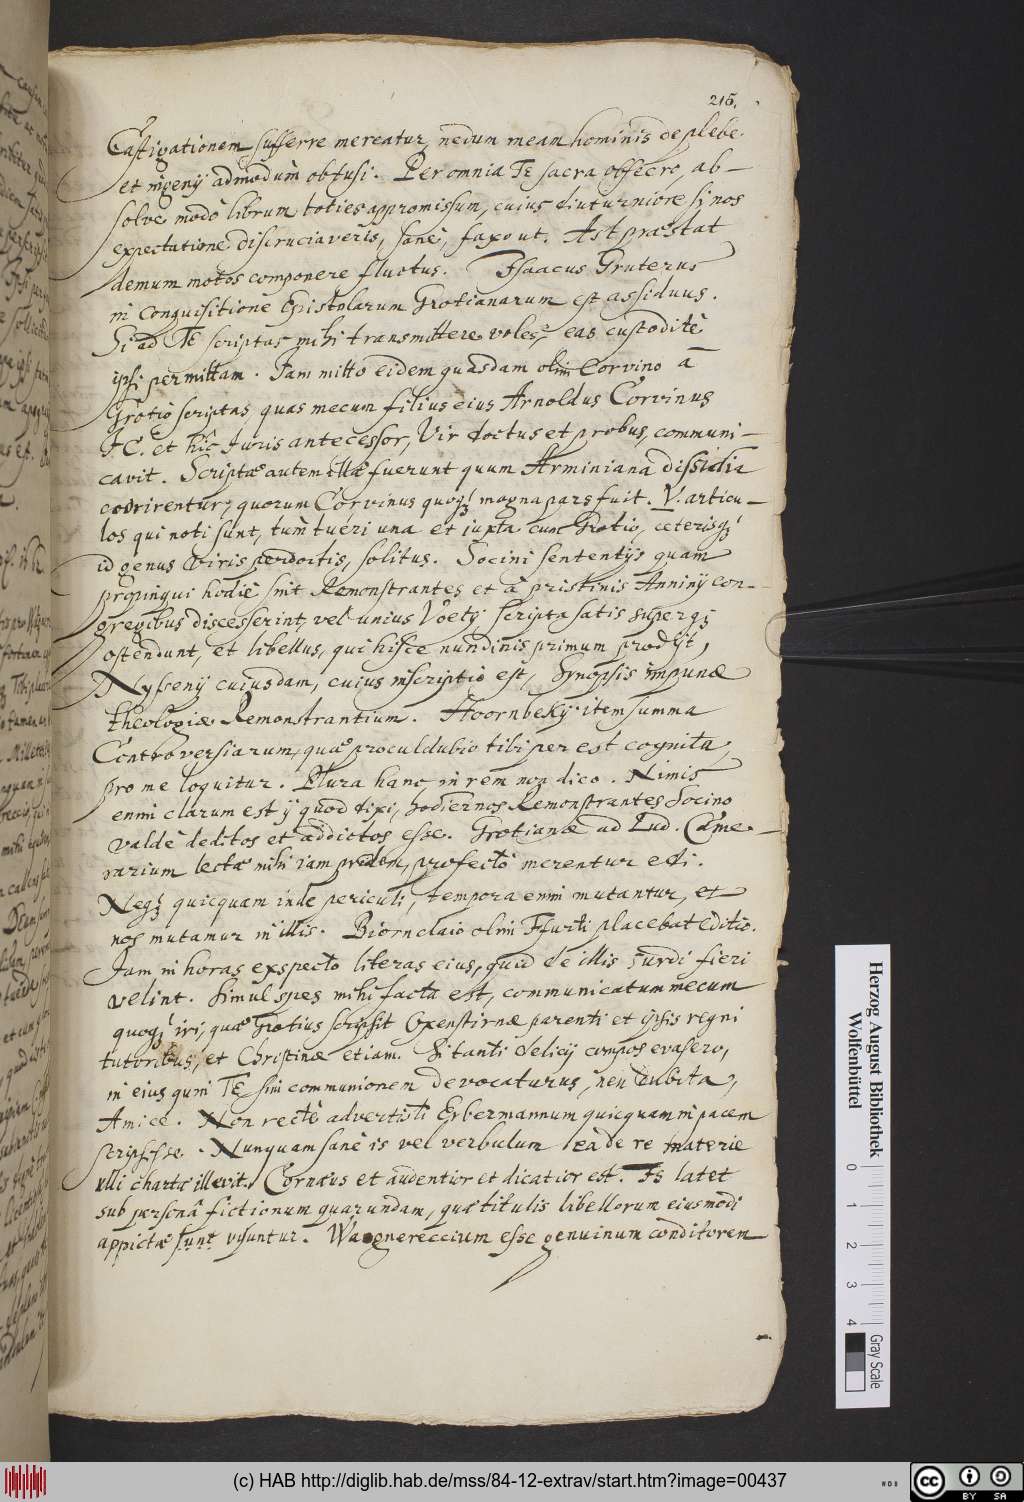 216.
Castigationem sufferre mereatur, nedum meam hominis de plebe
et ingenij admodùm obtusi. Per omnia Te sacra obsecro, ab-
solve modò librum toties appromissum, cuius diuturniore si nos
expectatione discruciaveris, sanè, faxo ut. Ast præstat
demum motos componere fluctus. Isaacus Gruterus
in conquisitione Epistolarum Grotianarum est assiduus.
Si ad Te scriptas mihi transmittere voles, eas custoditè
ipsi permittam. Jam mitto eidem quasdam olim Corvino à
Grotio scriptas quas mecum filius eius Arnoldus Corvinus
JC. et hîc Juris antecessor, Vir doctus et probus, communi-
cavit. Scriptæ autem illæ fuerunt quum Arminiana dissidia
coorirentur, quorum Corvinus quoq; magna pars fuit. V. articu-
los qui noti sunt, tùm tueri una et iuxta cum Grotio, ceterisq;
id genus viris perdoctis, solitus. Socini sententijs quam
propinqui hodiè sint Remonstrantes et à pristinis Arminij con-
gregibus discesserint, vel unius Voetij scripta satis superq;
ostendunt, et libellus, qui hisce nundinis primum prodijt,
Nysrenij cuiusdam, cuius inscriptio est, Synopsis impuræ
theologiæ Remonstrantium. Hoornbekij item summa
Controversiarum, quæ proculdubio tibi per est cognita,
pro me loquitur. Plura hanc in rem non dico. Nimis
enim clarum est ij quod dixi, hodiernos Remonstrantes Socino
valdè deditos et addictos esse. Grotianæ ad Lud. Came-
rarium lectæ mihi iam pridem, profectò merentur edi.
Neq; quicquam inde periculi, tempora enim mutantur, et
nos mutamur in illis. Biornclaio olim Ffurti placebat Editio.
Jam in horas expecto literas eius, quid de illis Surdi fieri
velint. Simul spes mihi facta est, communicatum mecum
quoq; iri, quæ Grotius scripsit Oxenstirnæ parenti et ipsis regni
tutoribus, et Christinæ etiam. Si tanti delicij compos evasero,
in eius quin Te sim communionem devocaturus, neu dubita,
Amice. Non rectè advertisti Erbermannum quicquam in pacem
scripsisse. Nunquam sanè is vel verbulum eâ de re materie
ulli chartæ illevit. Cornæus et audentior et dicatior est. Is latet
sub personâ fictionum quarundam, quæ titulis libellorum eiusmodi
appictæ sunt visuntur. Wangnereccium esse genuinum conditorem
Herzog August Bibliothek
Wolfenbüttel
0 1 2 3 4
Gray Scale
(c) HAB http://diglib.hab.de/mss/84-12-extrav/start.htm?image=00437
cc BY SA